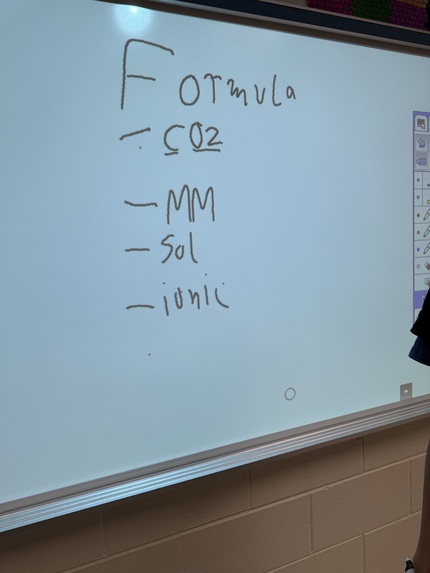 Formula
- CO2
- MM
- Sol
- ionic